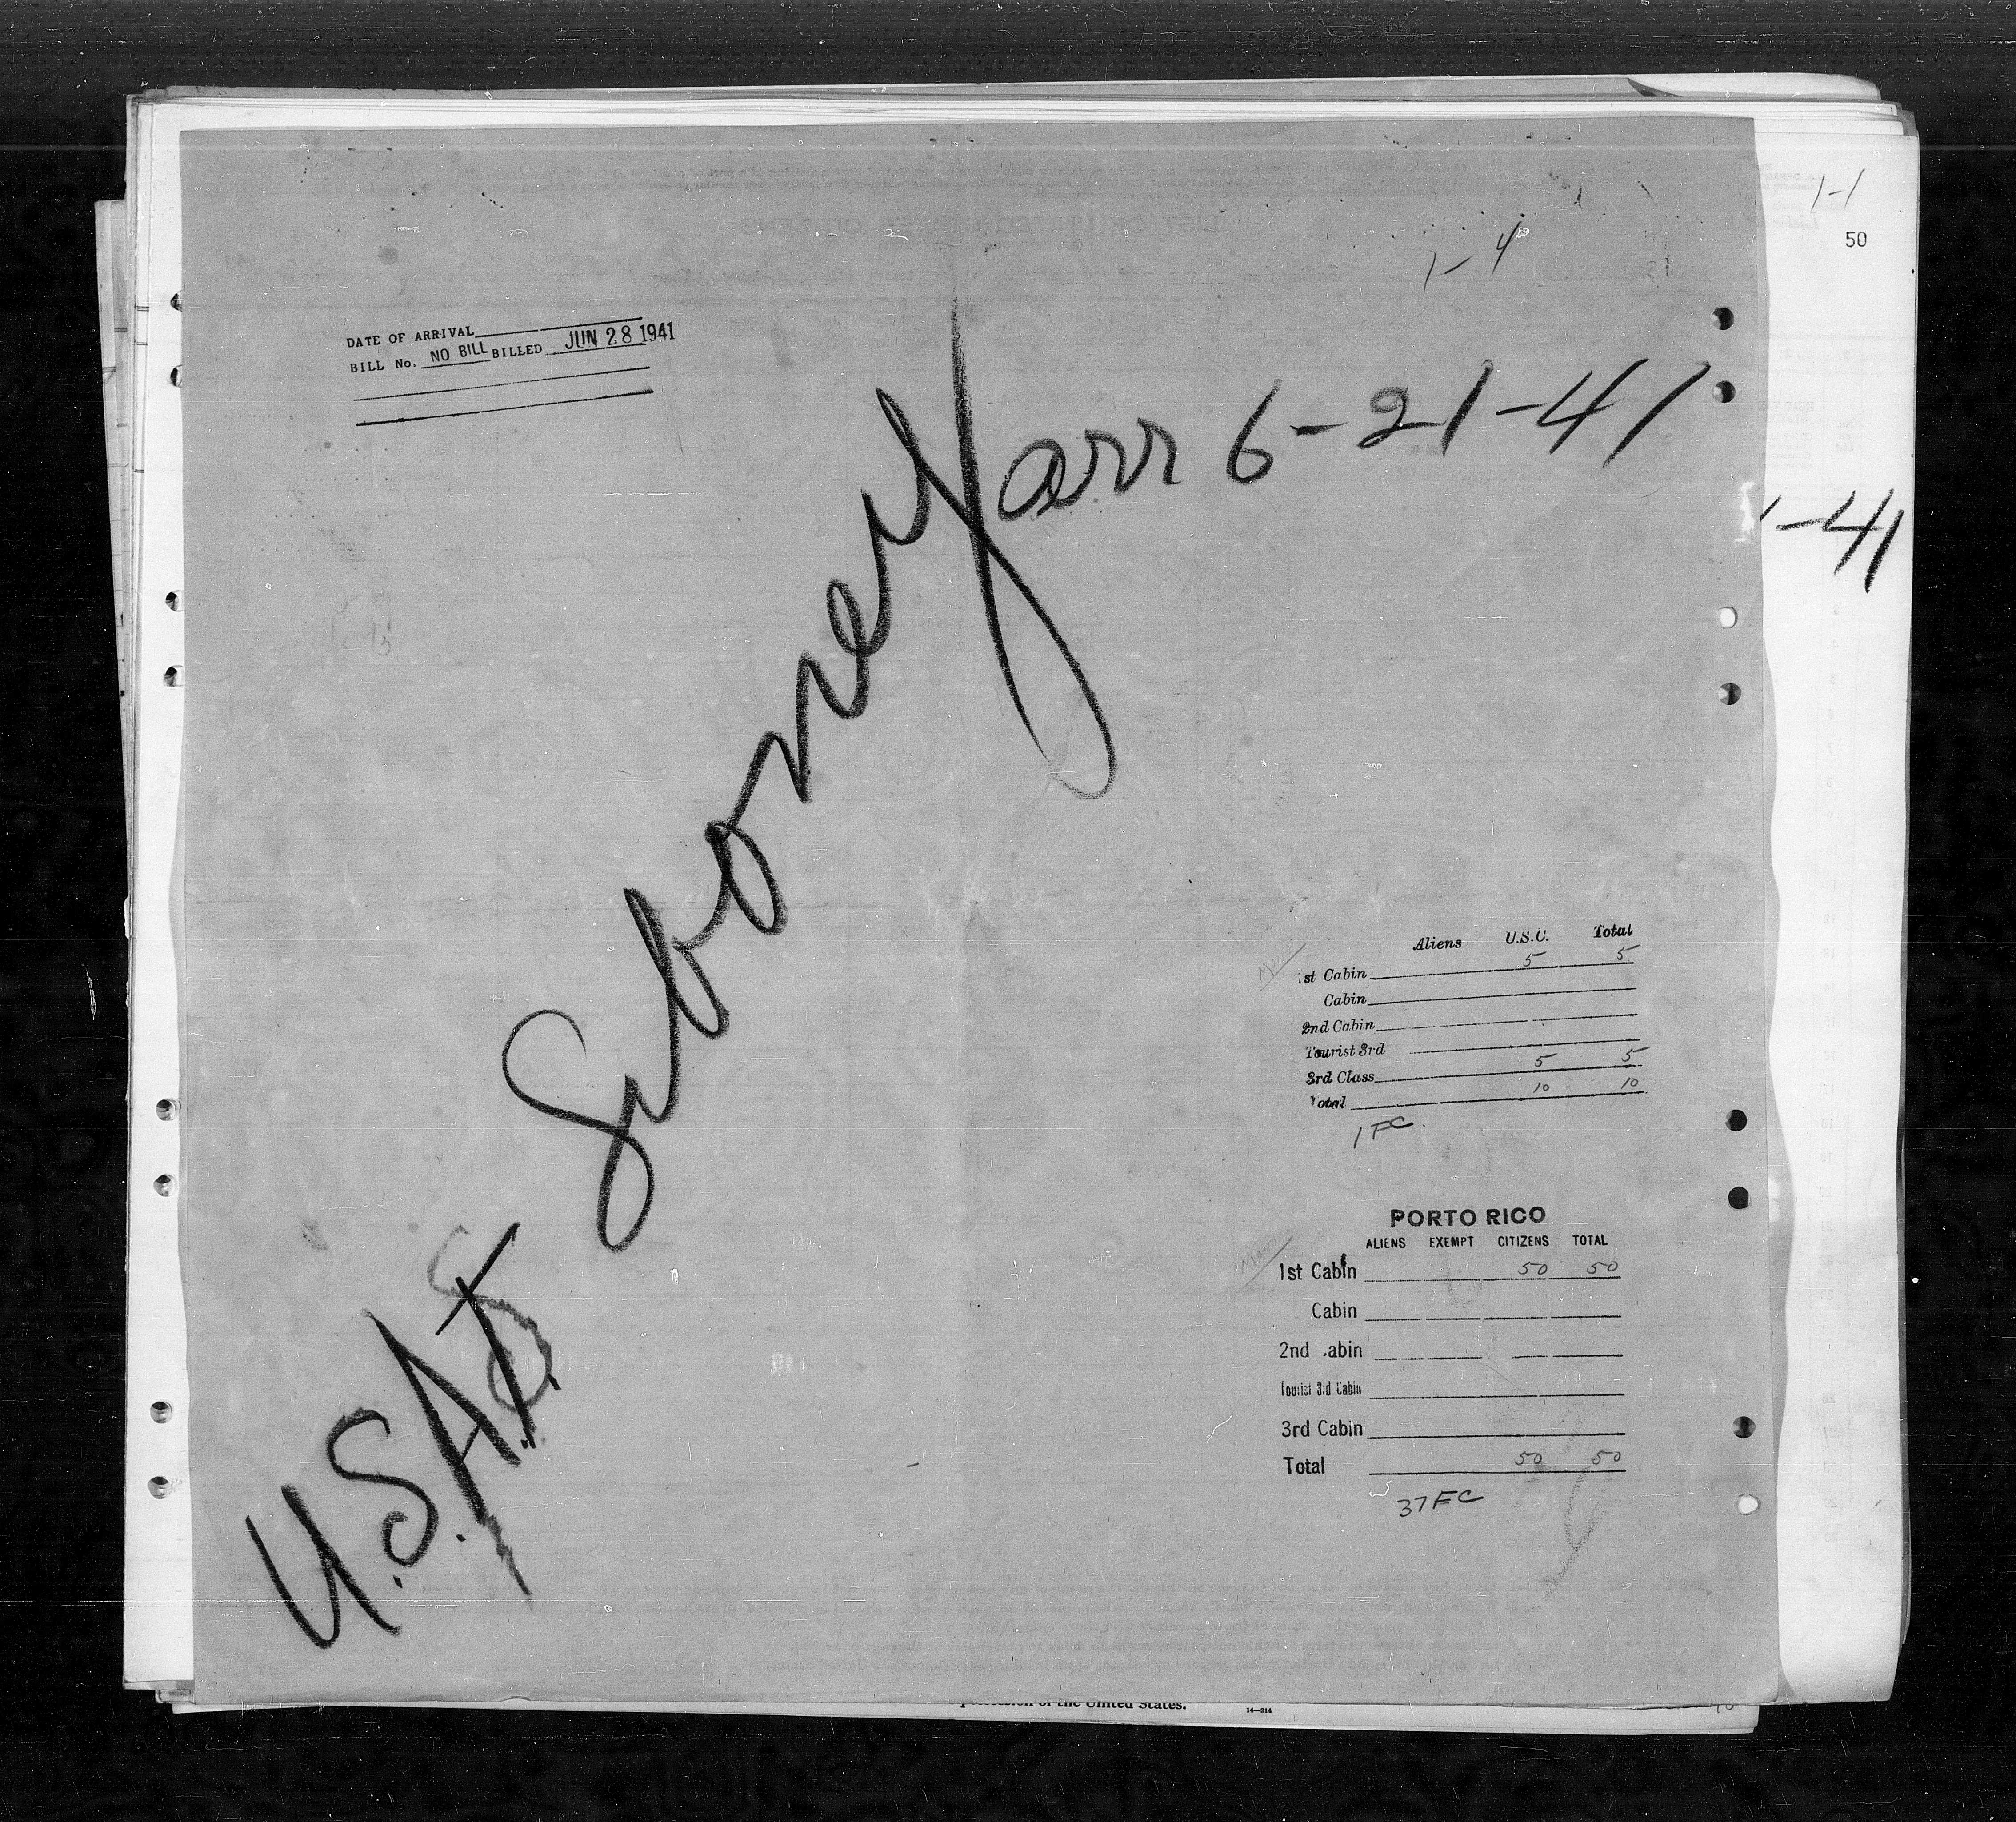 1-1
50
1-4
DATE OF ARRIVAL
BILL No. NO BILL BILLED JUN 28 1941
arr 6-21-41
-41
U.S.A.T. Siboney
Aliens U.S.C. Total
1st Cabin 5 5
Cabin
2nd Cabin
Tourist 3rd
3rd Class 5 5
Total 10 10
1 FC
PORTO RICO
ALIENS EXEMPT CITIZENS TOTAL
1st Cabin 50 50
Cabin
2nd Cabin
Tourist 3rd Cabin
3rd Cabin
Total 50 50
37 FC
of the United States.
14—214